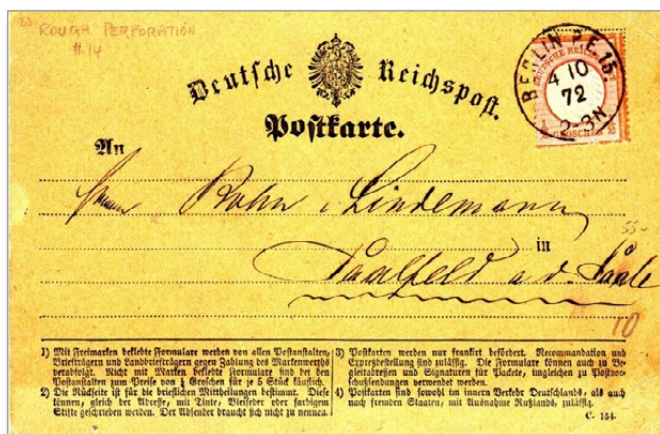 ROUGH PERPORATION
#14
Deutsche Reichspost.
Postkarte.
BERLIN P.E. 15.
4 10
72
2-3N
DEUTSCHE REICHS
GROSCHEN
An
Herren Bohn & Lindemann
in
Saalfeld a. d. Saale
55-
10
1) Mit Freimarken beklebte Formulare werden von allen Postanstalten,
Briefträgern und Landbriefträgern gegen Zahlung des Markenwerths
verabfolgt. Nicht mit Marken beklebte Formulare sind bei den
Postanstalten zum Preise von ¼ Groschen für je 5 Stück käuflich.
2) Die Rückseite ist für die brieflichen Mittheilungen bestimmt. Diese
können, gleich der Adresse, mit Tinte, Bleifeder oder farbigem
Stifte geschrieben werden. Der Absender braucht sich nicht zu nennen.
3) Postkarten werden nur frankirt befördert. Recommandation und
Expreßbestellung sind zulässig. Die Formulare können auch zu Be-
gleitadressen und Signaturen für Packete, imgleichen zu Postvor-
schußsendungen verwendet werden.
4) Postkarten sind sowohl im innern Verkehr Deutschlands, als auch
nach fremden Staaten, mit Ausnahme Rußlands, zulässig.
C. 154.